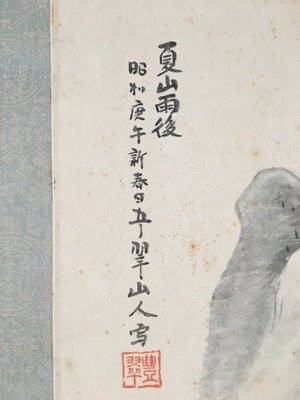 夏山雨後
昭和庚午新春日翠山人写
豊翠